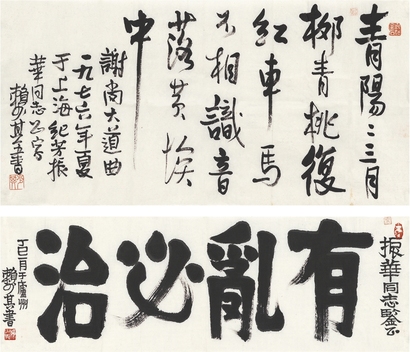 青陽二三月
柳青桃復
紅車馬
不相識音
落黃埃
中
謝尚大道曲
一九七六年夏
于上海紀芳振
華同志公寓
賴少其書
振華同志鑒
有亂必治
丁巳二月于廬州
賴少其書